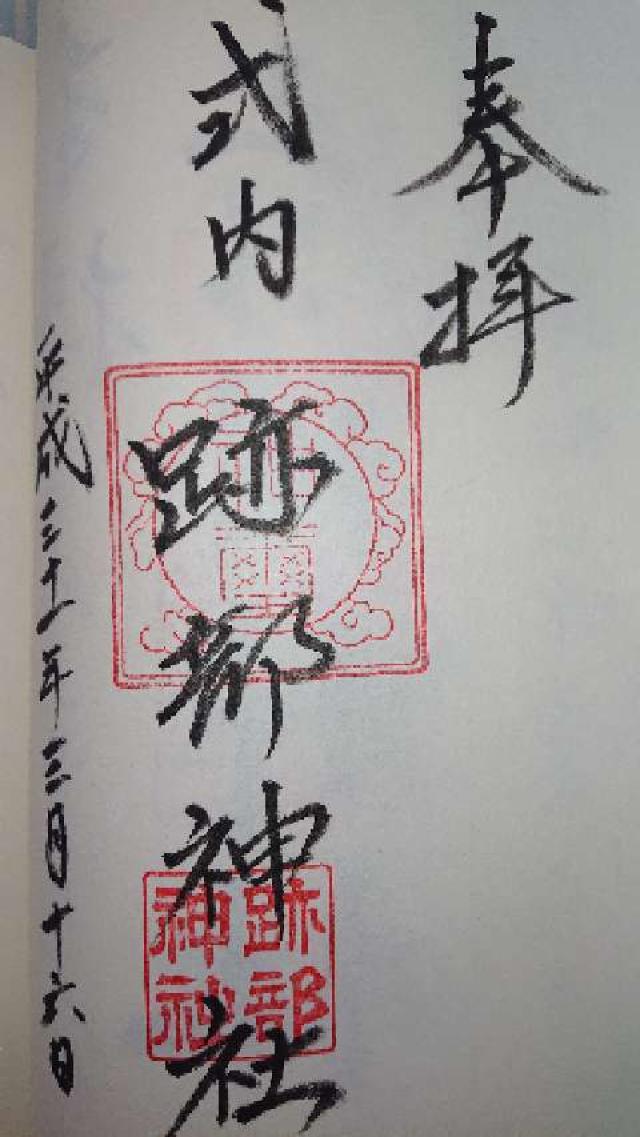 奉拝
式内
跡部神社
跡部
神社
平成三十一年三月十六日